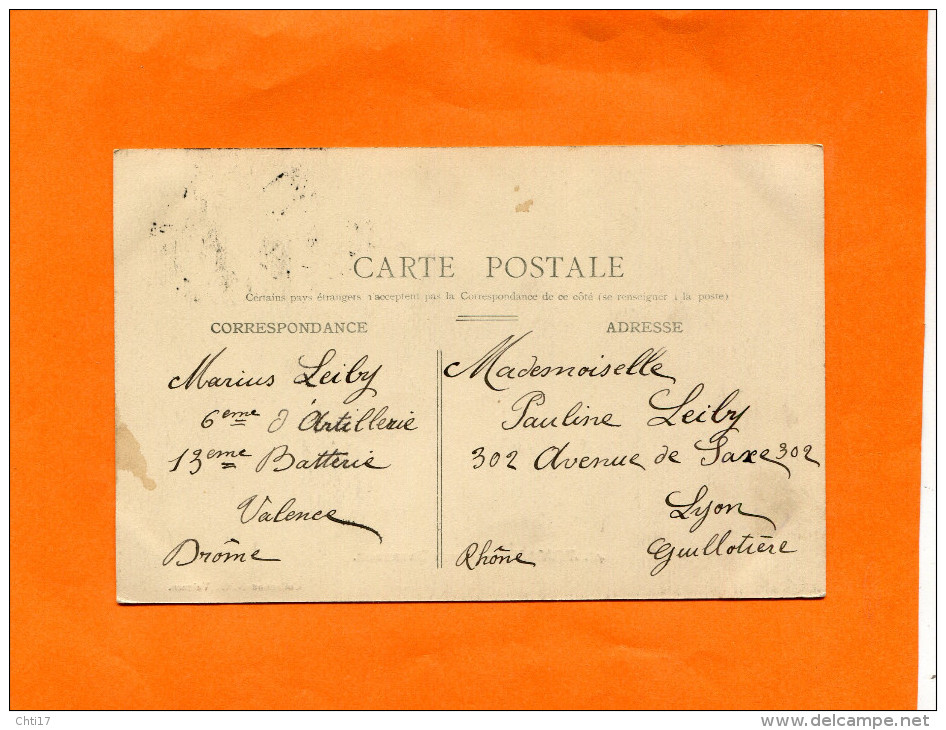 CARTE POSTALE
Certains pays étrangers n'acceptent pas la Correspondance de ce côté (se renseigner à la poste)
CORRESPONDANCE
Marius Leiby
6eme d'Artillerie
13eme Batterie
Valence
Drôme
ADRESSE
Mademoiselle
Pauline Leiby
302 Avenue de Saxe 302
Lyon
Guillotière
Rhône
Chti17
www.delcampe.net